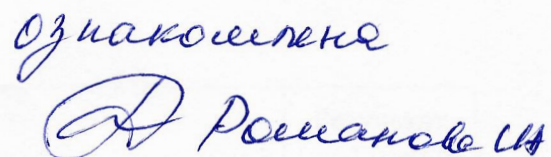 ознакомлена
Романова